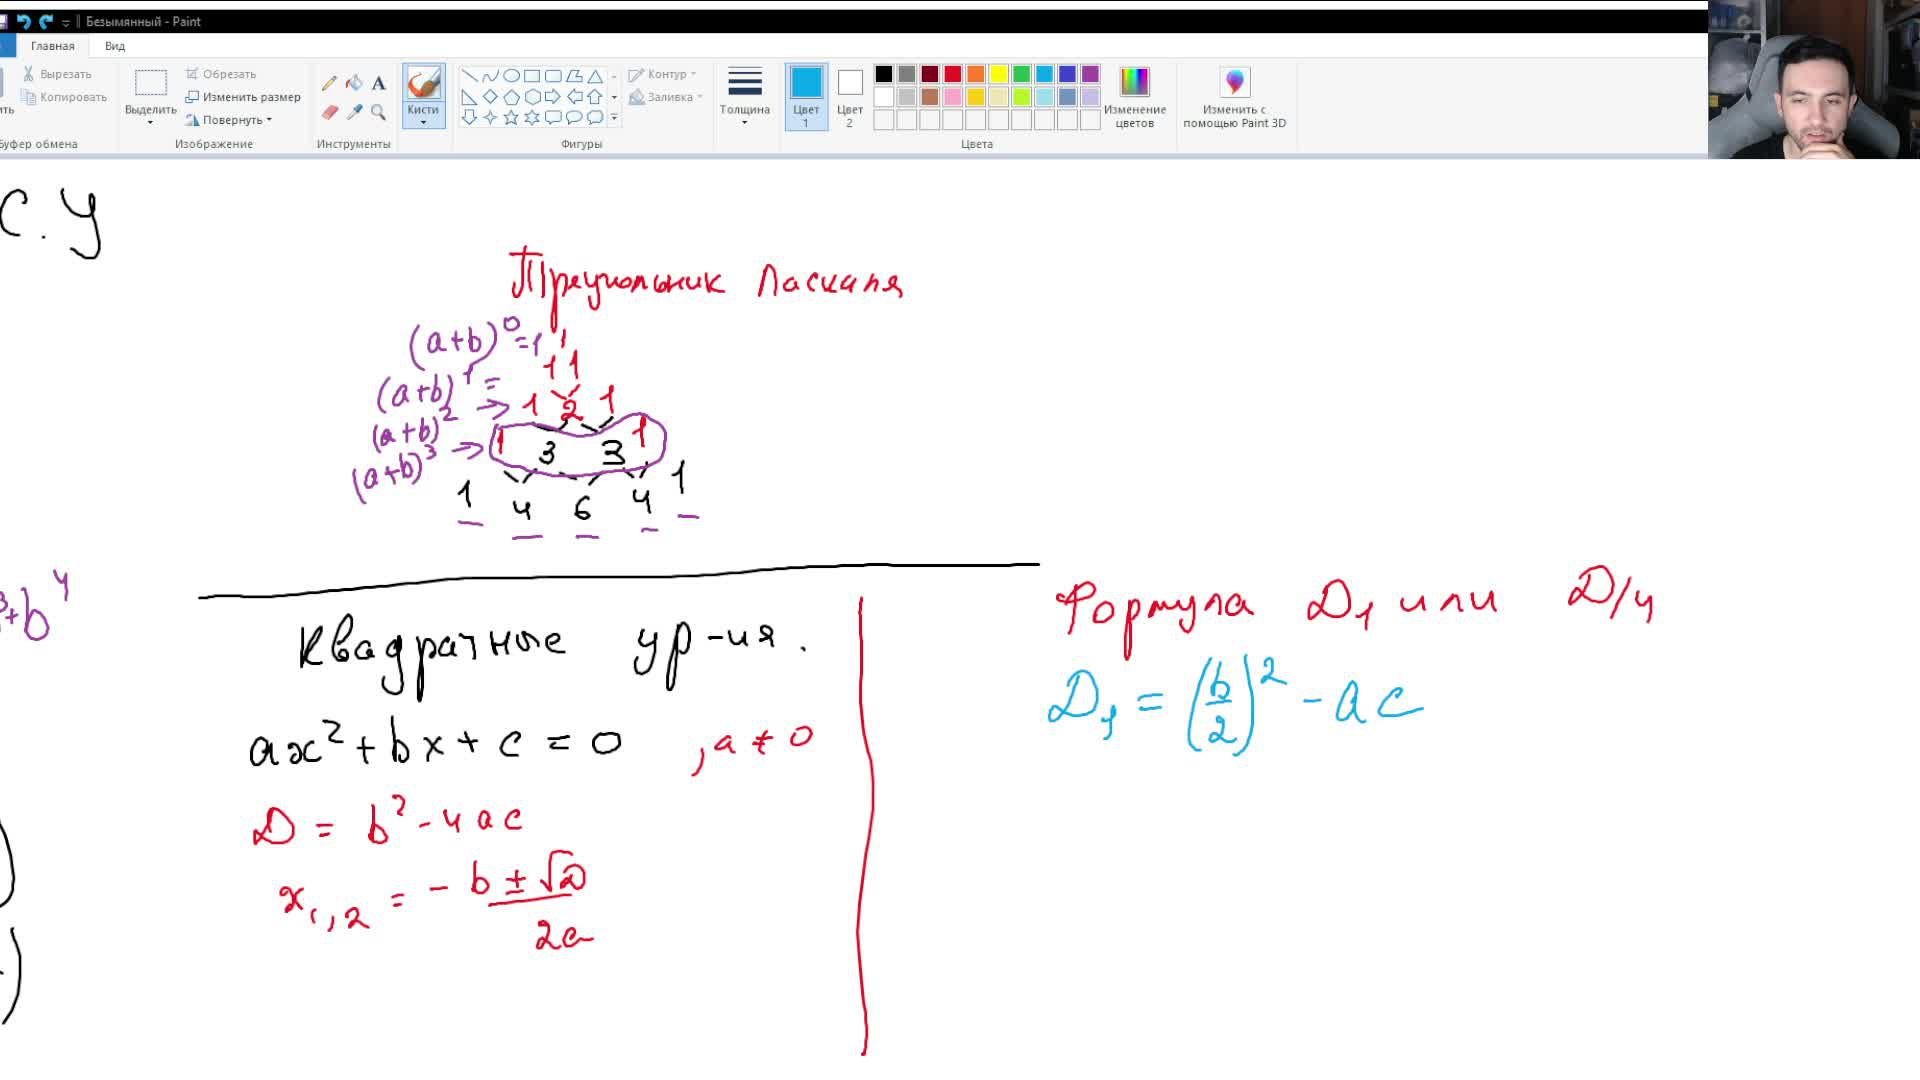 Безымянный - Paint
Главная Вид
Вырезать
Копировать
Буфер обмена
Выделить
Обрезать
Изменить размер
Повернуть
Изображение
Инструменты
Кисти
Фигуры
Контур
Заливка
Толщина
Цвет 1
Цвет 2
Цвета
Изменение цветов
Изменить с помощью Paint 3D
С.У
Треугольник Паскаля
(a+b)⁰ =1 1
(a+b)¹ = 1 1
(a+b)² → 1 2 1
(a+b)³ → 1 3 3 1
1 4 6 4 1
³+b⁴
Квадратные ур-ия.
ax²+bx+c=0 , a≠0
D = b²-4ac
x₁,₂ = -b±√D / 2a
Формула D₁ или D/4
D₁ = (b/2)² - ac